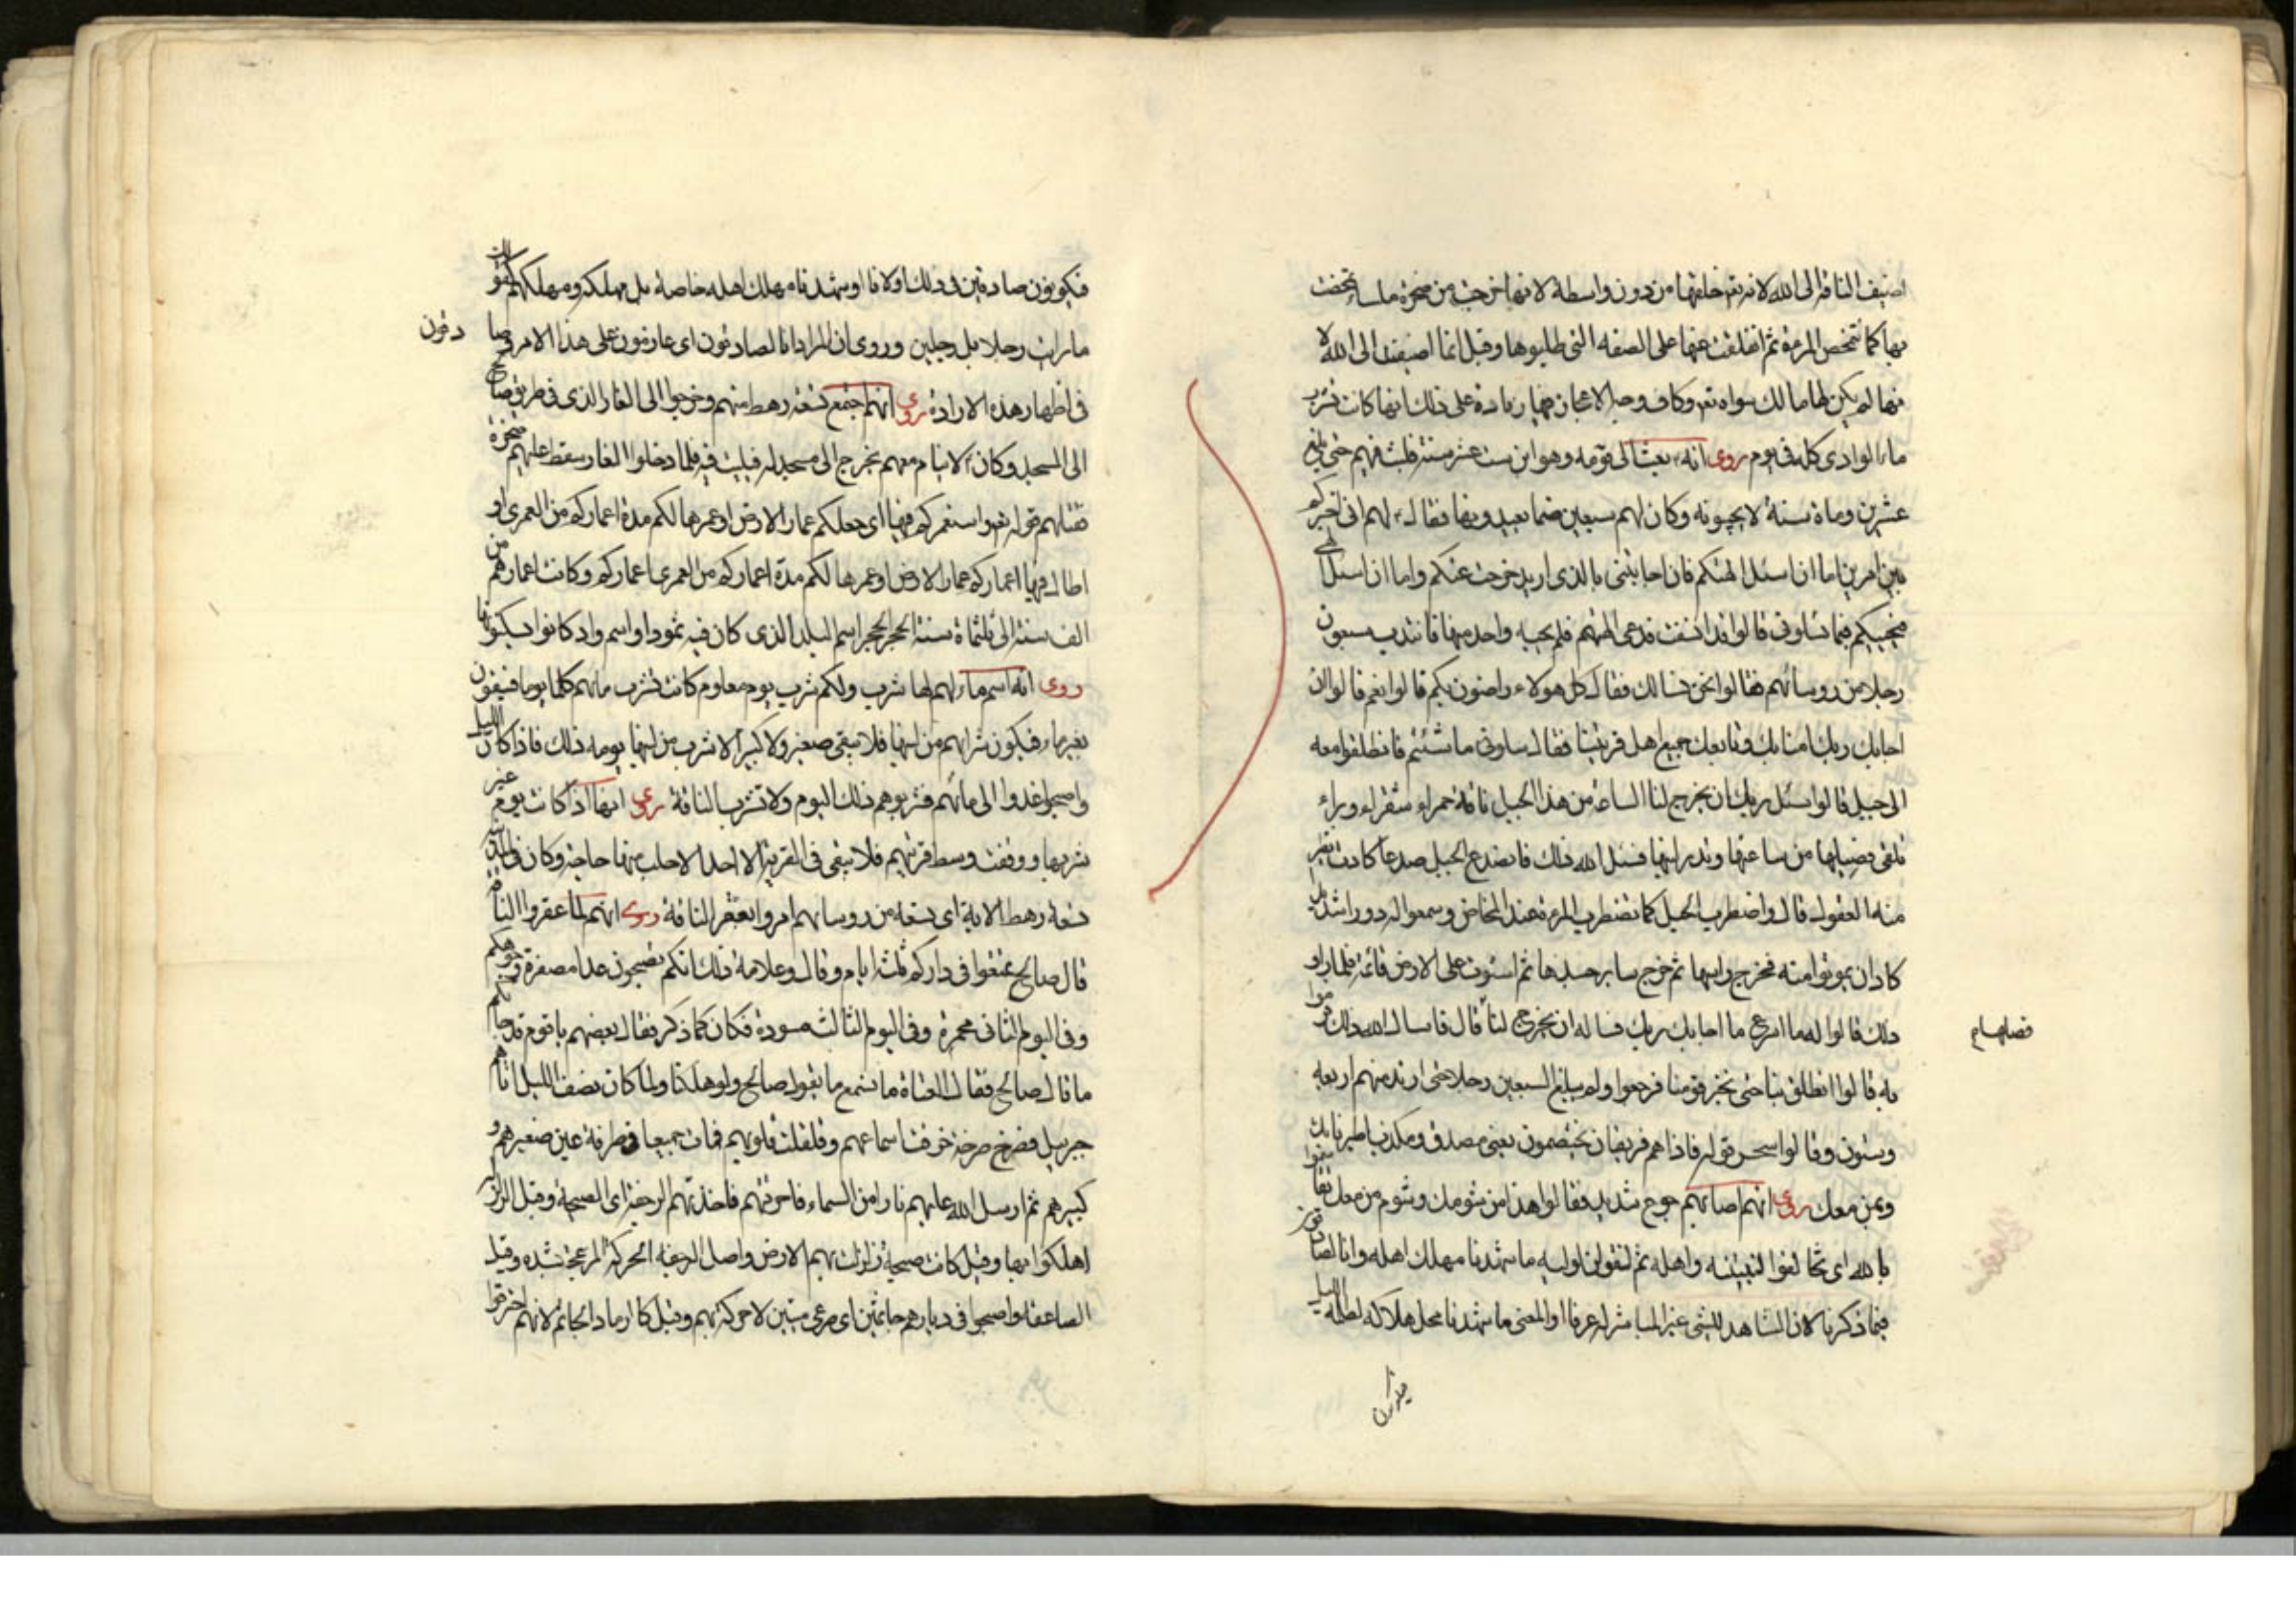 اضيف الناقة الى الله لانه تم خلقها من دون واسطة لانها خرجت من صخرة ملساء تمخضت
بها كما تتمخض المرءة ثم انفلقت عنها على الصفة التي طلبوها وقيل انما اضيفت الى الله لا
نها لم يكن لها مالك سواه تعـ وكان وجه الاعجاز فيها زيادة على ذلك انها كانت تشرب
ماء الوادى كله في يوم روى انه بعث الى قومه وهو ابن ست عشر سنة فلبث فيهم حتى بلغ
عشرين وماة سنة لا يجيبونه وكان لهم سبعين صنما يعبدونها فقال لهم انى اخيركم
بين امرين اما ان اسئل الهتكم فان اجابتنى بالذى اريد خرجت عنكم واما ان اسئل الهى
فيجيبكم فيما تسئلونى قالوا قد انصفت فدعى الهتهم فلم يجبه واحد منها فانتدب سبعون
رجلا من روسائهم فقالوا نحن نسالك فقال كل هولاء راضون بكم قالوا نعم قالوا ان
اجابك ربك امنا بك وتابعك جميع اهل قريتنا فقال سلونى ما شئتم فانطلقوا معه
الى جبل قالوا سئل ربك ان يخرج لنا الساعة من هذا الجبل ناقة حمراء شقراء وبراء
تلقى فصيلها من ساعتها وتدر لبنها فسئل الله ذلك فانصدع الجبل صدعا كادت تطير
منه العقول قال واضطرب الجبل كما تضطرب المرءة عند المخاض وسمعوا له دورا شديدا
كاد ان يموتوا منه فخرج راسها ثم خرج ساير جسدها ثم استوت على الارض قائمة فلما راو
ذلك قالوا له ما اسرع ما اجابك ربك فساله ان يخرج لنا قال فاسال الله ذلك فرموا
فصيلها
به قالوا انطلق بنا حتى نخبر قومنا فرجعوا ولم يبلغ السبعين رجلا حتى ارتد منهم اربعة
وستون وقالوا سحر قوله فاذا هم فريقان يختصمون يعنى مصدق ومكذب اطيرنا بك
وبمن معك روى انهم اصابهم جوع شديد فقالوا هذا من شومك وشوم من معك تقاسموا
بالله اى تحالفوا لنبيتنه واهله ثم لنقولن لوليه ما شهدنا مهلك اهله وانا لصادقون
فيما ذكرنا لان الشاهد للشى غير المباشر له عرفا او المعنى ما شهدنا محل هلاكه لظلمة الليل
فيكونون صادقين في ذلك اولا نا او شهدنا مهلك اهله خاصة بل مهلكه ومهلكهم كقولك
ما رايت رجلا بل رجلين وروى ان المراد انا لصادقون اى عازمون على هذا الامر وصا
دقون
في اظهار هذه الارادة روى انهم اجتمع تسعة رهط منهم وخرجوا الى الغار الذى في طريق صالح
الى المسجد وكان لا ينام معهم يخرج الى مسجد له فيبيت فيه فلما دخلوا الغار سقط عليهم صخرة
فقتلهم قوله تعـ واستعمركم فيها اى جعلكم عمار الارض او عمرها لكم مدة اعماركم من العمرى او
اطال فيها اعماركم عمار الارض او عمرها لكم مدة اعماركم من العمرى اعماركم وكانت اعمارهم من
الف سنة الى ثلثماة سنة الحجر الحجر اسم البلد الذى كان فيه ثمود او اسم واد كانوا يسكونها
روى انه اسم ماء لهم لها شرب ولكم شرب يوم معلوم كانت تشرب ماءهم كلها يوما فيبقون
بغير ماء فيكون شرابهم من لبنها فلا يبقى صغير ولا كبير الا شرب من لبنها يومه ذلك فاذا كان الليل
واصبحوا غدوا الى مائهم فشربوهم ذلك اليوم ولا تشرب الناقة روى انها اذا كانت يوم غير
شربها ووقفت وسط قريتهم فلا يبقى في القرية الا احد الا حلب منها حاجته وكان في المدينة
تسعة رهط الاية اى تسعة من روسائهم امروا بعقر الناقة روى انهم لما عقروا الناقة
قال صالح تمتعوا في داركم ثلثة ايام وقال وعلامة ذلك انكم تصبحون غدا مصفرة وجوهكم
وفي اليوم الثانى محمرة وفي اليوم الثالث مسودة فكان كما ذكر فقال بعضهم يا قوم قد جاءكم
ما قال صالح فقال العتاة ما نسمع ما يقول صالح ولو هلكنا ولما كان نصف الليل اتاهم
جبريل فصرخ صرخة خرقت اسماعهم وقلقلت قلوبهم فمات جميعا في طرفة عين صغيرهم و
كبيرهم ثم ارسل الله عليهم نارا من السماء فاحرقتهم فاخذتهم الرجفة اى الصيحة وقيل الزلزلة
اهلكوا بها وقيل كانت صيحة زلزلت بهم الارض واصل الرجفة الحركة المزعجة بشده وقيل
الصاعقة واصبحوا في ديارهم جاثمين اى صرعى ميتين لا حركة بهم وقيل كالرماد الجاثم لانهم احترقوا